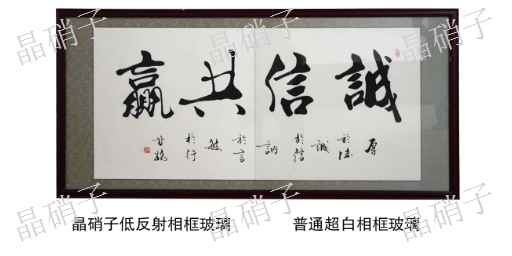 晶硝子
晶硝子
晶硝子
誠信共贏
厚於德
誠於信
訥於言
敏於行
晶硝子低反射相框玻璃
普通超白相框玻璃
晶硝子
晶硝子
晶硝子